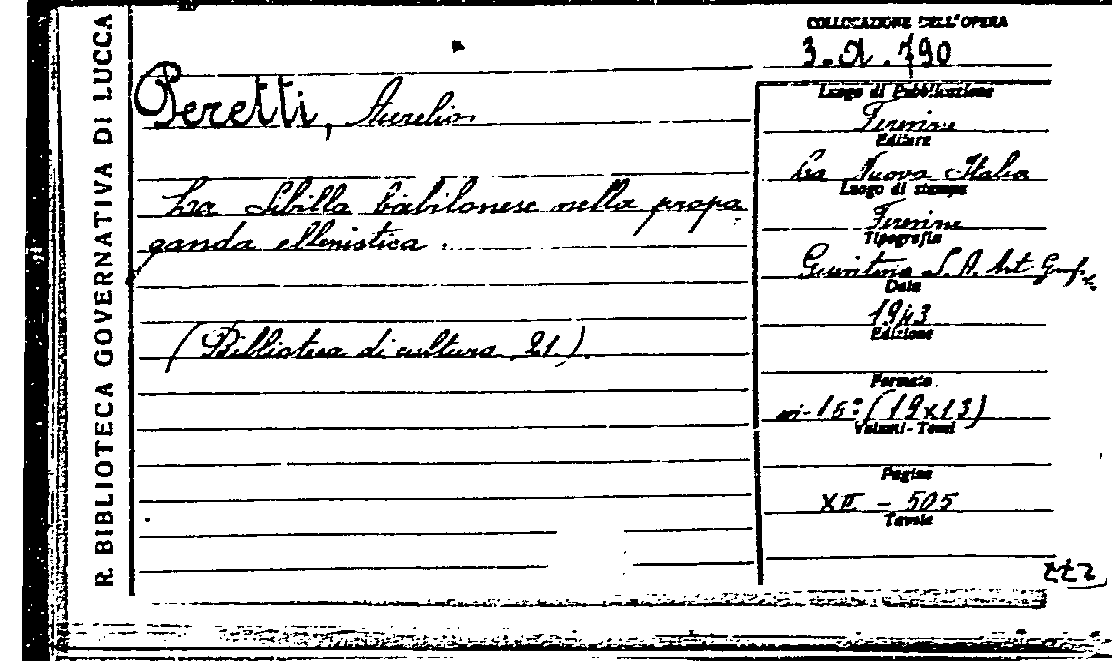 R. BIBLIOTECA GOVERNATIVA DI LUCCA
COLLOCAZIONE DELL'OPERA
3. A. 790
Peretti, Aurelio
La Sibilla babilonese nella propa
ganda ellenistica.
(Biblioteca di cultura 21).
Luogo di Pubblicazione
Firenze
Editore
La Nuova Italia
Luogo di stampa
Firenze
Tipografia
Giuntina S. A. Art. Graf.
Data
1943
Edizione
Formato
in-16º (19x13)
Volumi - Tomi
Pagine
XII - 505
Tavole